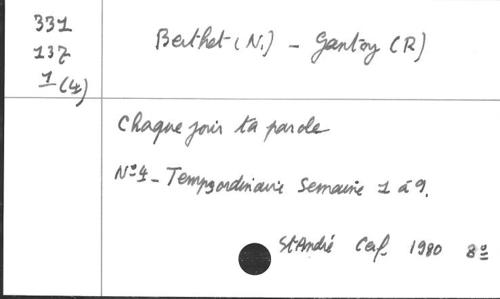 331
137
1 (4)
Berthet (N.) - Gantoy (R)
Chaque jour ta parole
Nº 4 - Temps ordinaire Semaine 1 à 9.
St André Cerf. 1980 8º